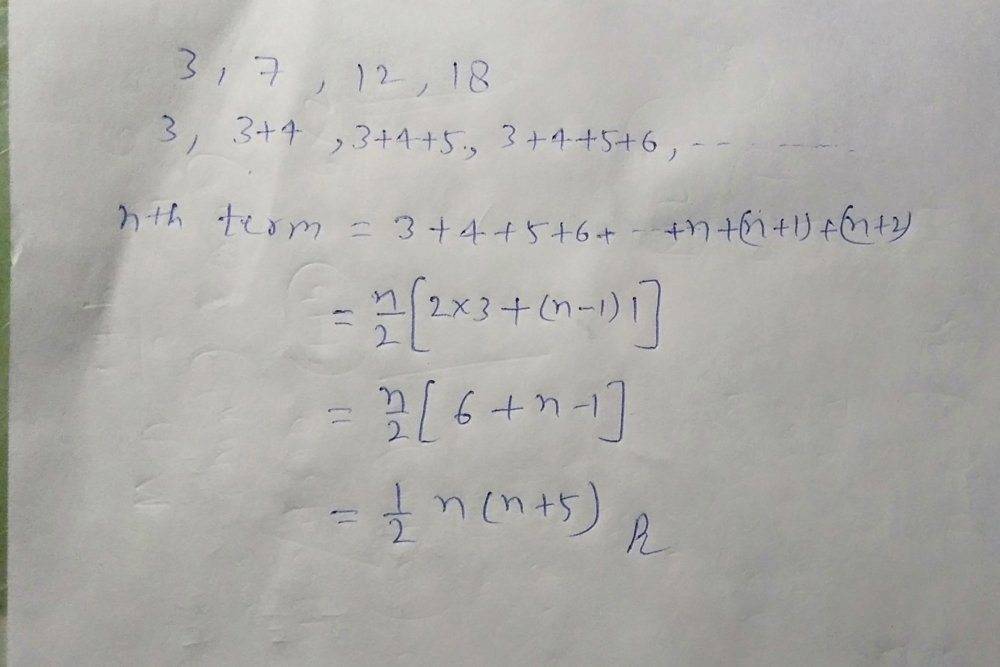 3, 7, 12, 18
3, 3+4, 3+4+5, 3+4+5+6, ---------
nth term = 3+4+5+6+---+n+(n+1)+(n+2)
= n/2 [2×3+(n-1)1]
= n/2 [6+n-1]
= 1/2 n(n+5)